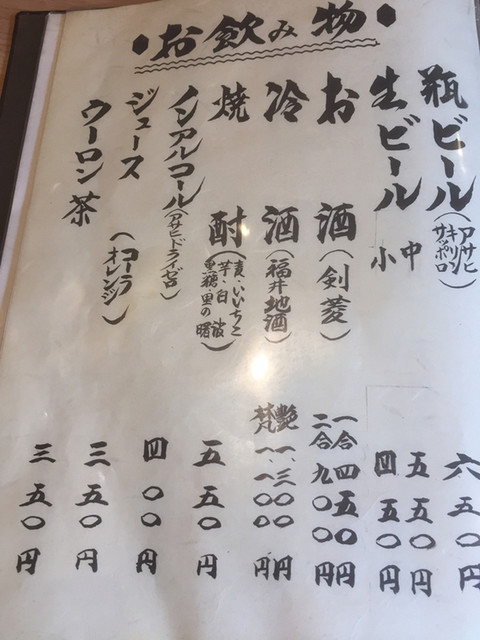 お飲み物
瓶ビール（アサヒ キリン サッポロ） 六五〇円
生ビール 中 五五〇円
小 四五〇円
お酒（剣菱） 一合 四五〇円
二合 九〇〇円
冷酒（福井地酒） 艶 一、三〇〇円
梵 一、一〇〇円
焼酎（麦・いいちこ 芋・白波 黒糖・里の曙） 五五〇円
ノンアルコール（アサヒドライゼロ） 四〇〇円
ジュース（コーラ オレンジ） 三五〇円
ウーロン茶 三五〇円